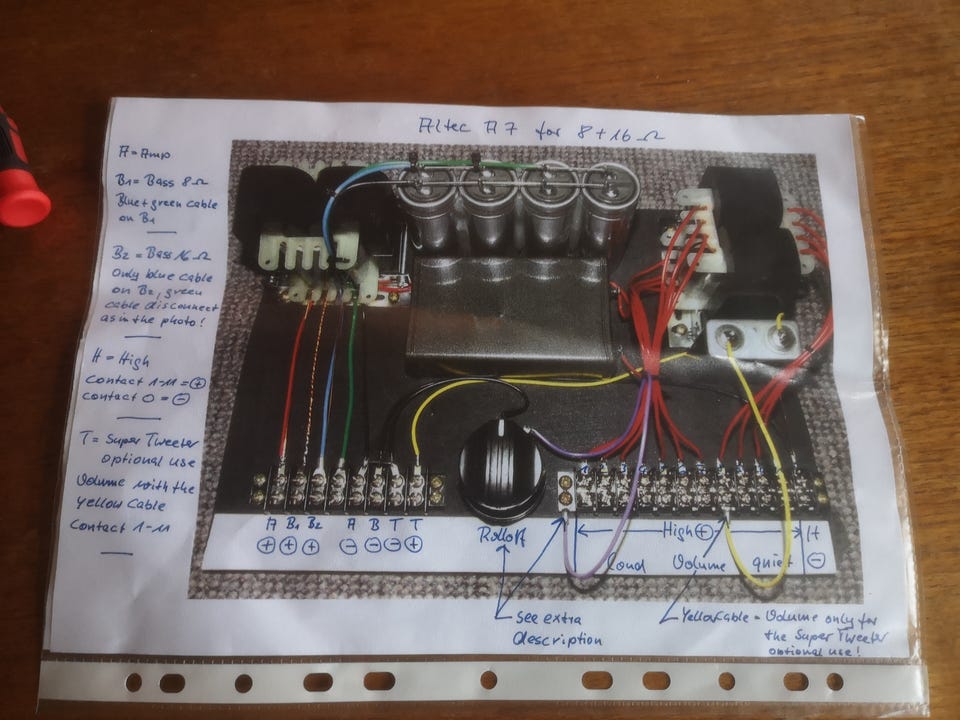 Altec A7 for 8 + 16 Ω
A = Amp
B1 = Bass 8 Ω
Blue + green cable
on B1
B2 = Bass 16 Ω
Only blue cable
on B2, green
cable disconnect
as in the photo!
H = High
Contact 1-11 = ⊕
contact 0 = ⊖
T = Super Tweeter
optional use
Volume with the
yellow Cable
Contact 1-11
A B1 B2 A B T T
⊕ ⊕ ⊕ ⊖ ⊖ ⊖ ⊕
Rolloff
High ⊕
H
loud Volume quiet ⊖
See extra
description
Yellow Cable = Volume only for
the Super Tweeter
optional use!